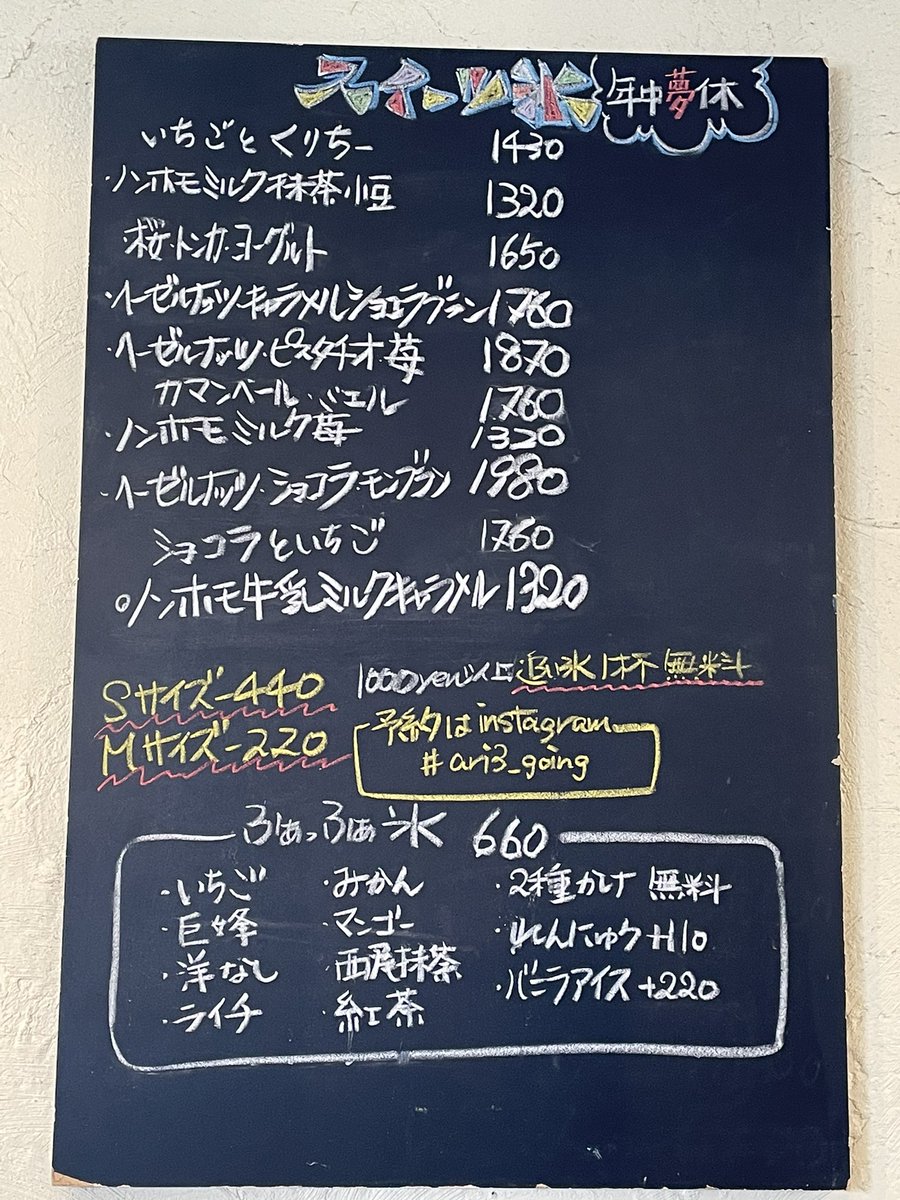 スイーツ氷 年中夢休
いちごとくりちー 1430
・ノンホモミルク抹茶小豆 1320
・桜・トンカ・ヨーグルト 1650
・ヘーゼルナッツ・キャラメルショコラブラン 1760
・ヘーゼルナッツ・ピスタチオ・苺 1870
カマンベール・ミエル 1760
・ノンホモミルク苺 1320
・ヘーゼルナッツ・ショコラ・モンブラン 1980
ショコラといちご 1760
○ノンホモ牛乳ミルクキャラメル 1320
Sサイズ-440 1000yen以上追い氷1杯無料
Mサイズ-220 予約はinstagram
#ari3_going
ふぁっふぁ氷 660
・いちご ・みかん ・2種かけ 無料
・巨峰 ・マンゴー ・れんにゅう+110
・洋なし ・西尾抹茶 ・バニラアイス+220
・ライチ ・紅茶